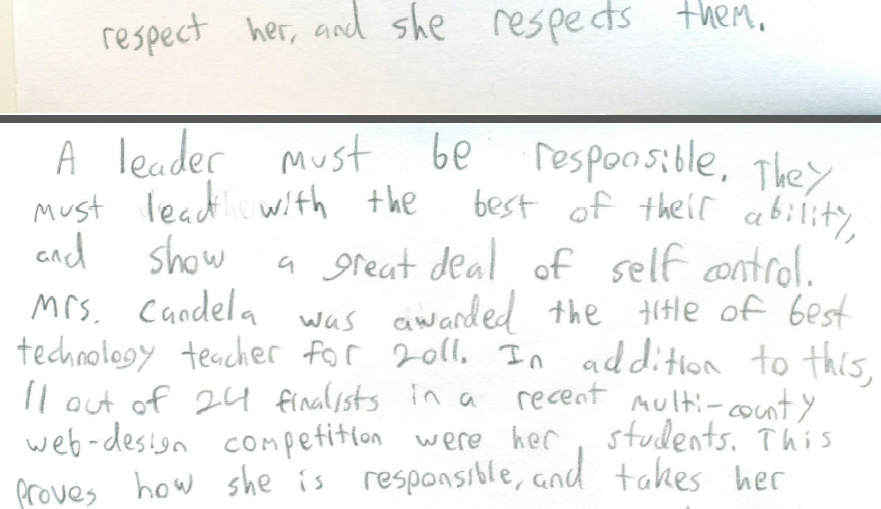 respect her, and she respects them.
A leader must be responsible. They
must lead with the best of their ability,
and show a great deal of self control.
Mrs. Candela was awarded the title of best
technology teacher for 2011. In addition to this,
11 out of 24 finalists in a recent multi-county
web-design competition were her students. This
proves how she is responsible, and takes her